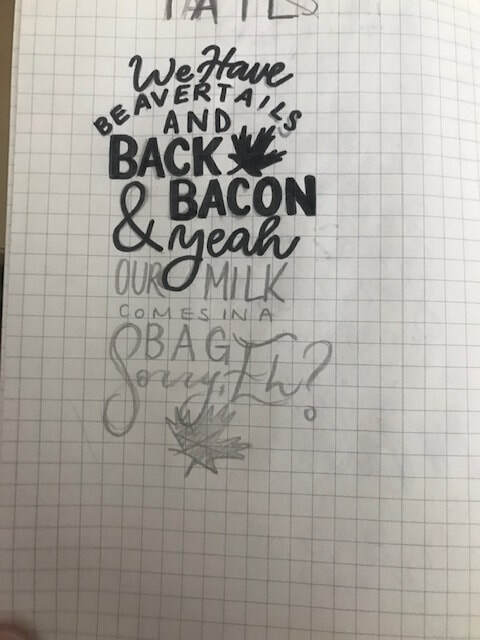 TAILS
We Have
BEAVERTAILS
AND
BACK
BACON
& yeah
OUR MILK
COMES IN A
BAG
Sorry, Eh?